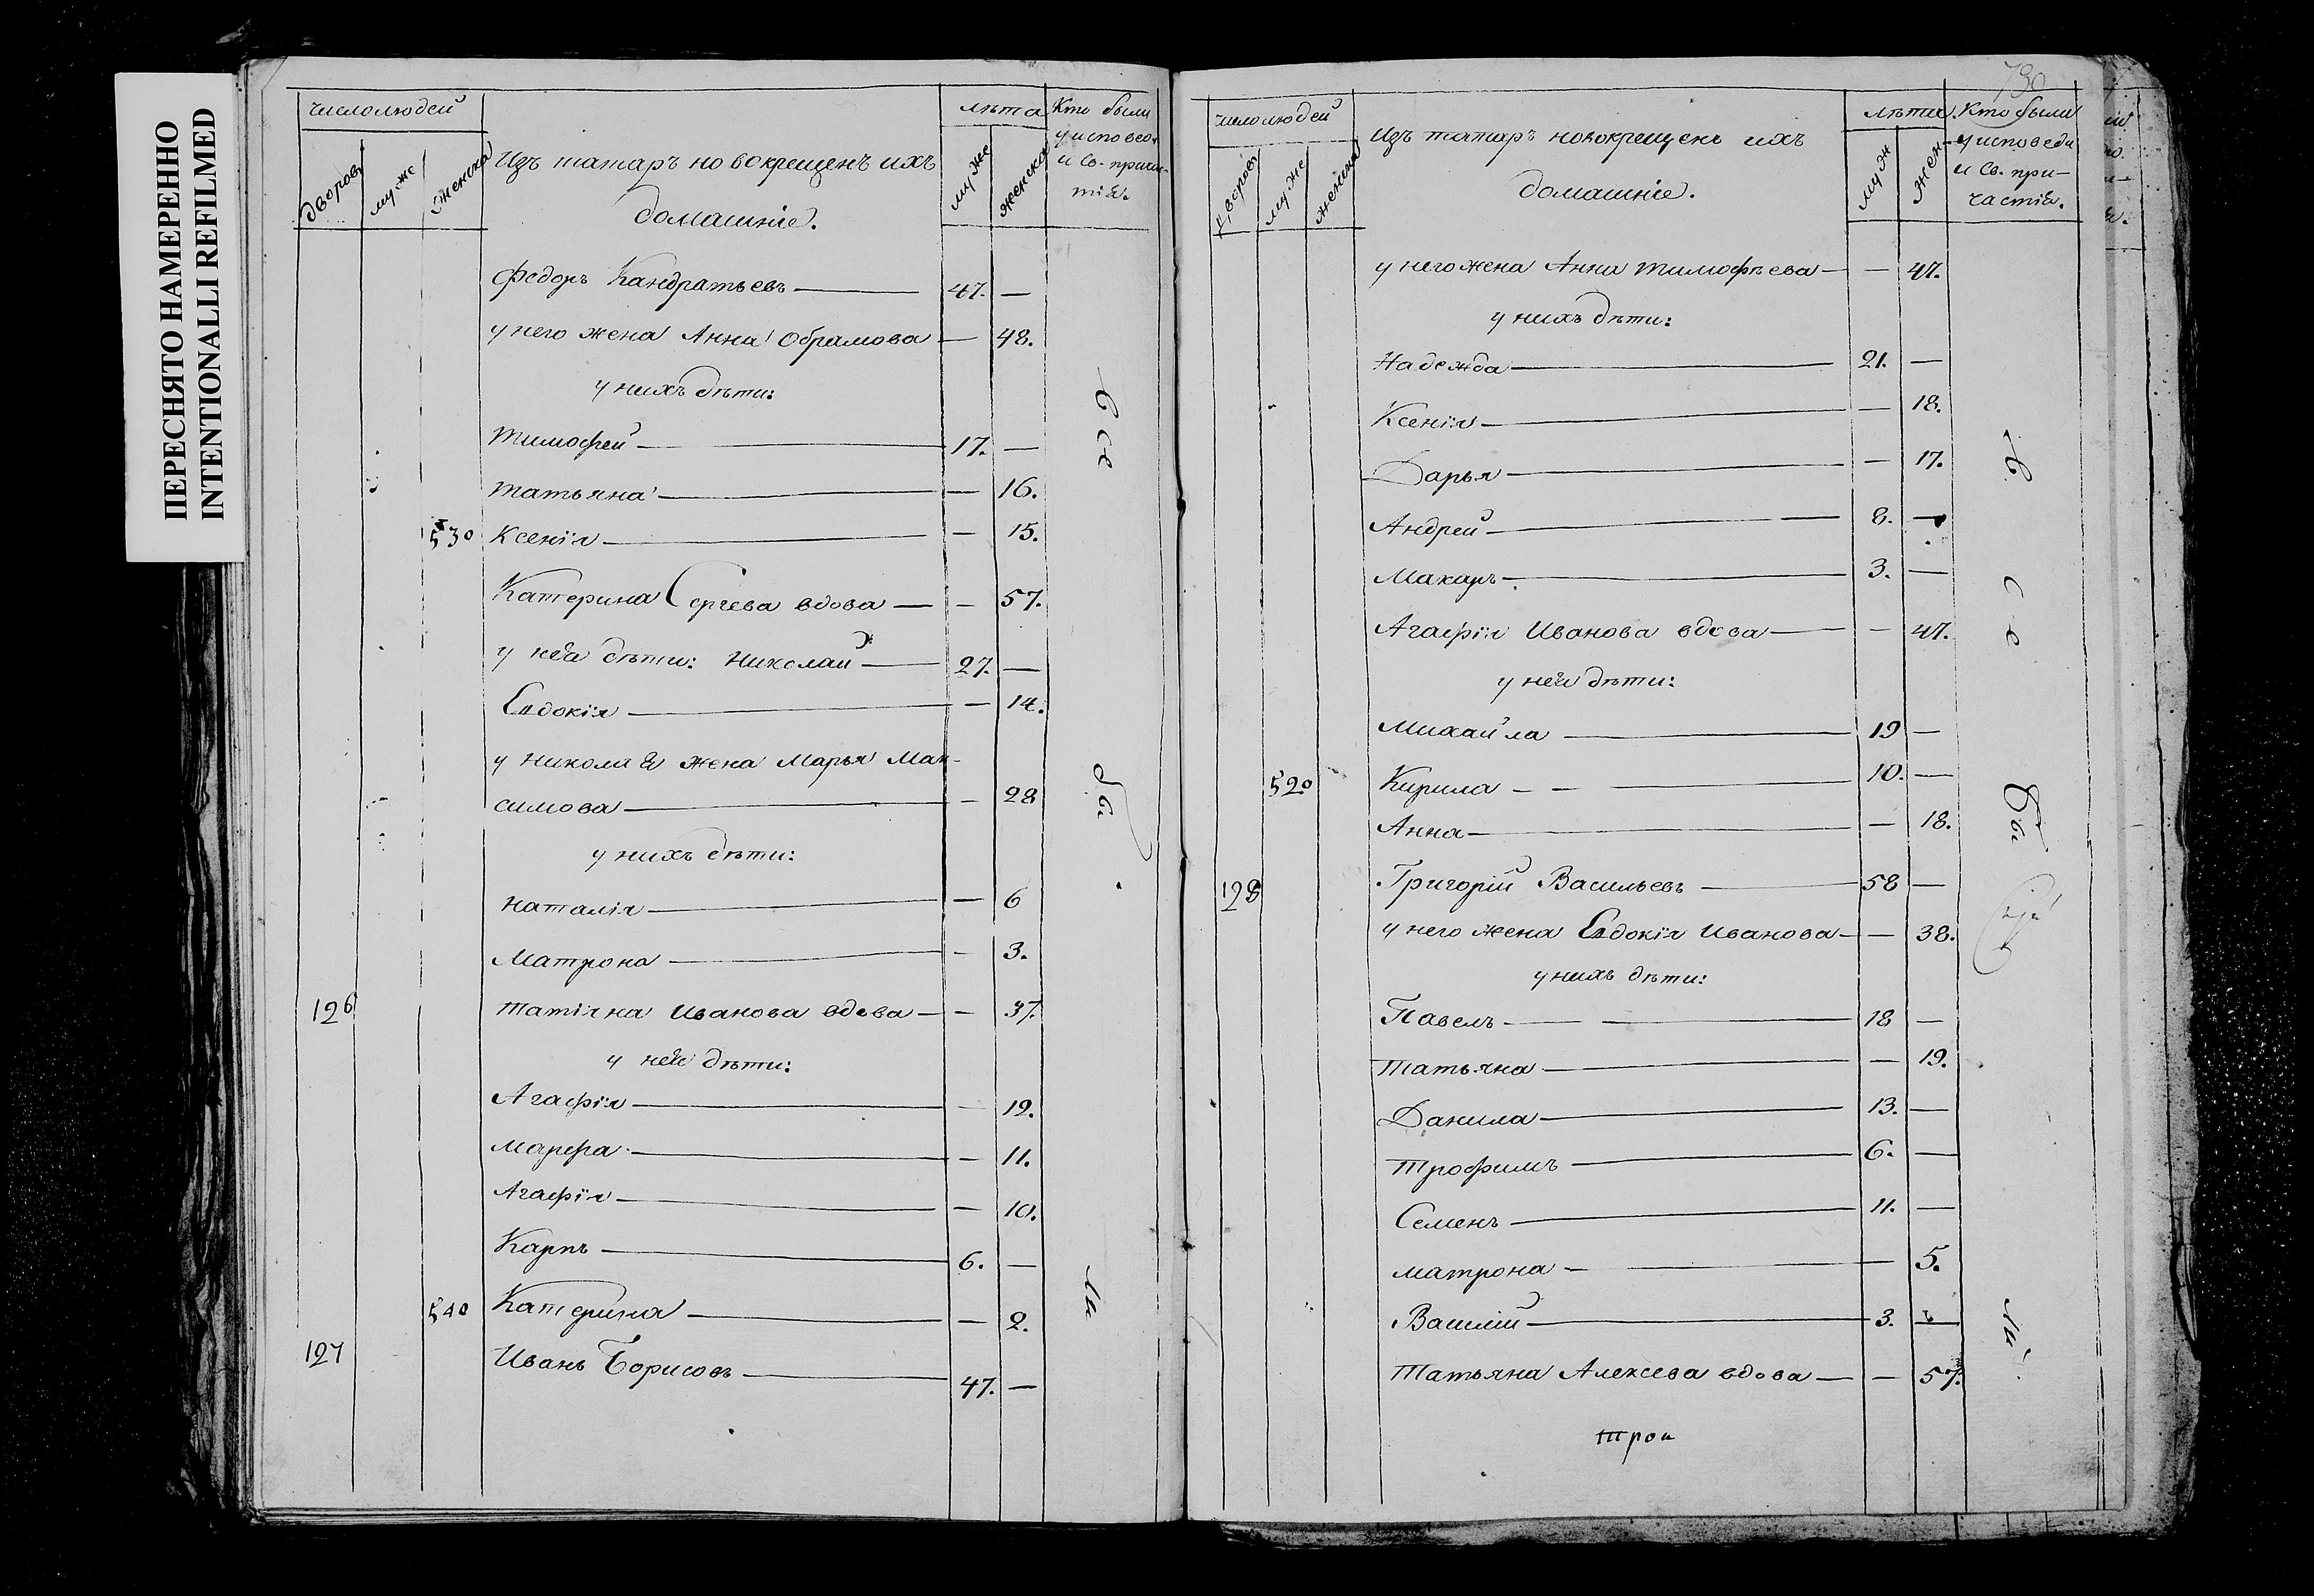 ПЕРЕСНЯТО НАМЕРЕННО
INTENTIONALLI REFILMED
числолюдей
дворовъ
муже
женска
Изъ татаръ новокрещенъ ихъ
домашніе.
лѣта
муже
женска
Кто были
у исповеди
и Св. прича-
тія.
Федоръ Кандратьевъ — 47. —
у него жена Анна Обрамова — 48.
у нихъ дѣти:
Тимофей — 17. —
татьяна — — 16.
530 Ксенія — — 15.
Катерина Сергева вдова — — 57.
у нея дѣти: Николай — 27. —
Евдокія — — 14.
у николая жена Марья Мак-
симова — — 28
у нихъ дѣти:
наталія — — 6
Матрона — — 3.
126 Татіяна Иванова вдова — — 37.
у нея дѣти:
Агафія — — 12.
Марфа — — 11.
Агафія — — 10.
Карпъ — 6. —
540 Катерина — — 2.
127 Иванъ Борисовъ — 47. —
Все
бы
ли
730
числолюдей
дворовъ
муже
женска
Изъ татаръ новокрещенъ ихъ
домашніе.
лѣта
муж
жен.
Кто были
у исповеди
и Св. при-
частія.
у него жена Анна тимофѣева — — 47.
у нихъ дѣти:
Надежда — 21. —
Ксенія — — 18.
Дарья — — 17.
Андрей — 8. —
Макаръ — 3. —
Агафія Иванова вдова — — 47.
у нея дѣти:
Михайла — 19 —
520 Кирила — — 10. —
Анна — — 18.
128 Григорій Васильевъ — 58 —
у него жена Евдокія Иванова — — 38.
у нихъ дѣти:
Павелъ — 18 —
татьяна — — 19.
Данила — 13. —
трофимъ — 6. —
Семенъ — 11. —
матрона — — 5.
Василій — 3. —
Татьяна Алексева вдова — — 57.
трои
Все
бы
ли.